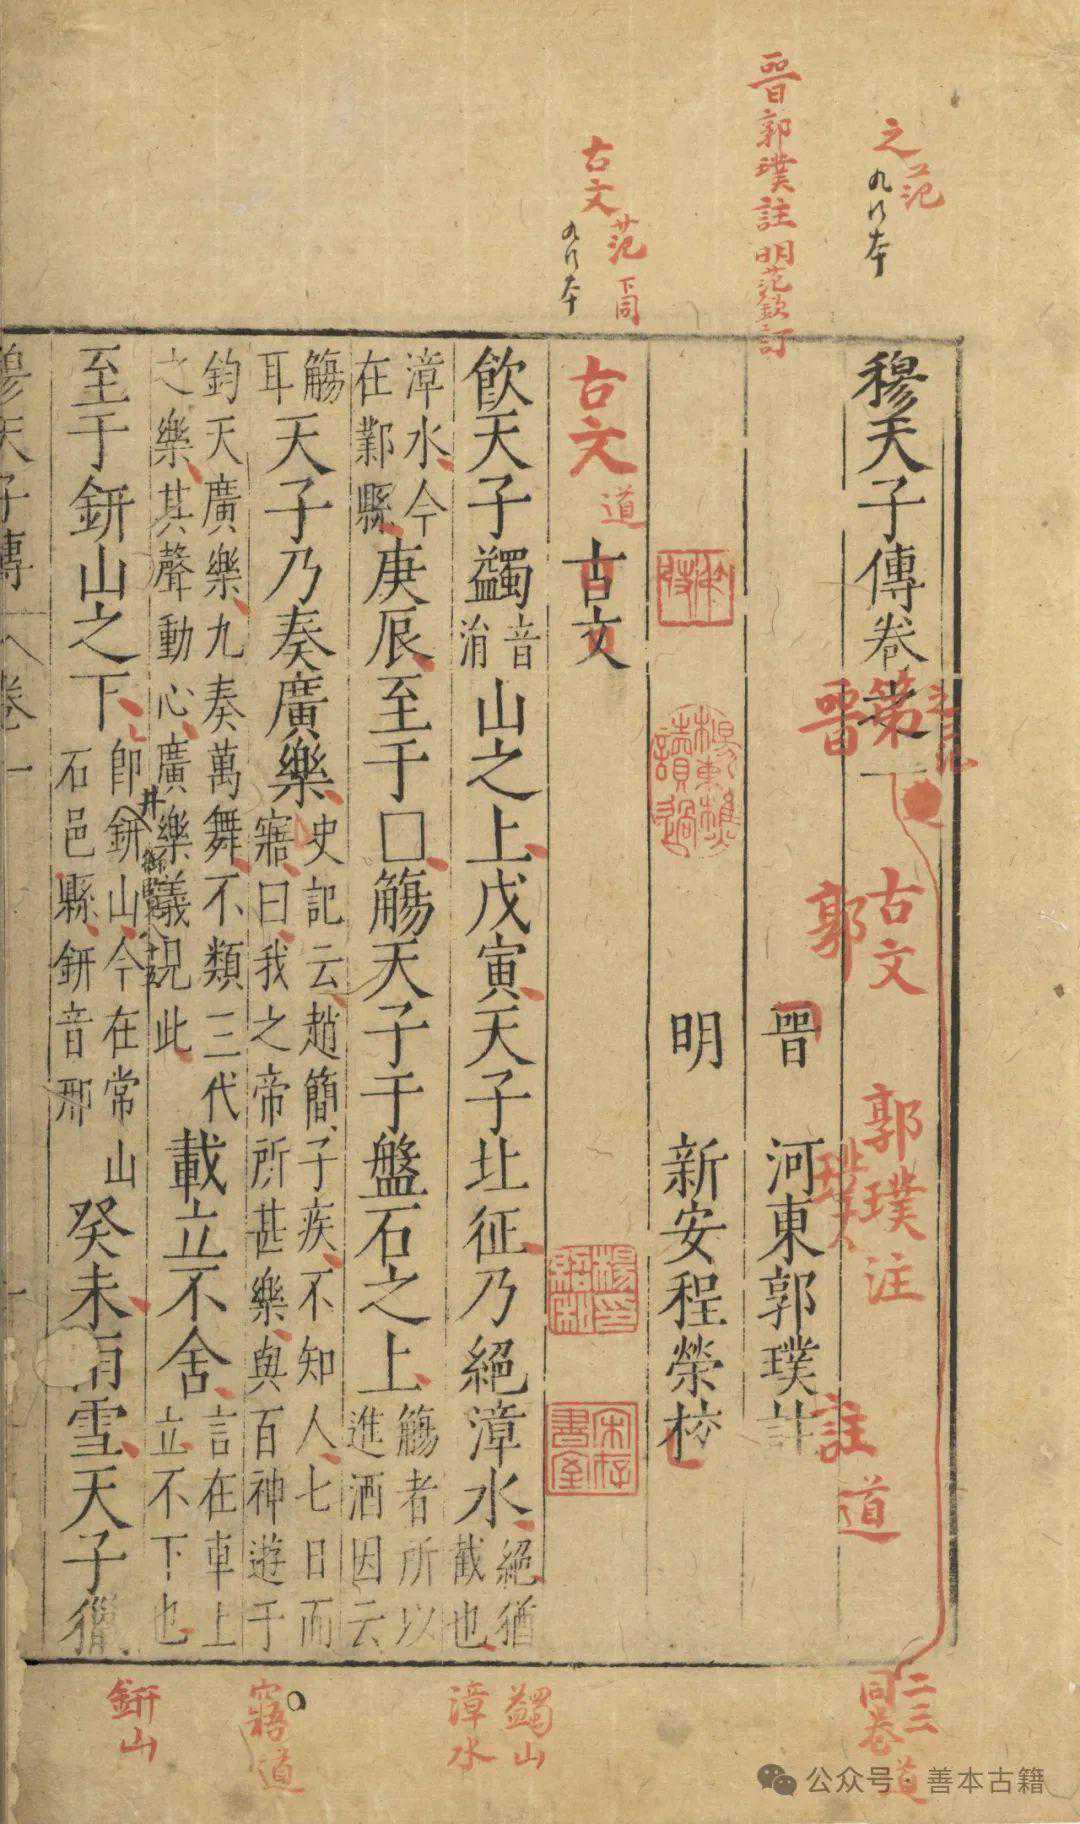 穆天子傳卷
晉 河東郭璞註
明 新安程榮校
古文
飲天子蠲音消山之上戊寅天子北征乃絕漳水絕猶截也
漳水今在鄴縣庚辰至于□觴天子于盤石之上觴者所以進酒因云
觴耳天子乃奏廣樂史記云趙簡子疾不知人七日而寤曰我之帝所甚樂與百神遊于
鈞天廣樂九奏萬舞不類三代之樂其聲動心廣樂義見此載立不舍言在車上立不下也
至于鈃山之下即鈃山今在常山石邑縣鈃音邢癸未雨雪天子獵
穆天子傳 卷一
之范
九行本
晉郭璞註 明范欽訂
古文范下同
九行本
古文道
第
古文 郭璞注
晉 郭璞註 道
二三同卷道
蠲山
漳水
寤道
鈃山
井
宋存書室
公众号 善本古籍